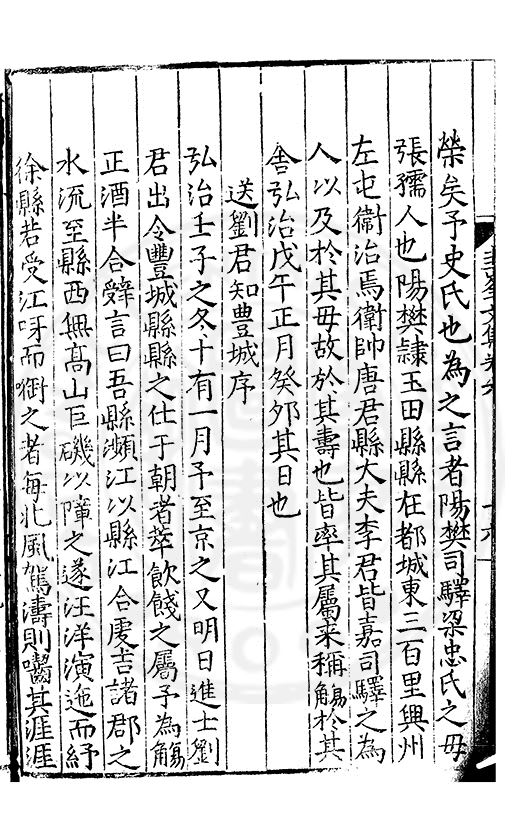 榮矣予史氏也為之言者陽樊司驛梁忠氏之母
張孺人也陽樊隸玉田縣縣在都城東三百里興州
左屯衛治焉衛帥唐君縣大夫李君皆嘉司驛之為
人以及於其母故於其壽也皆率其屬来稱觴於其
舍弘治戊午正月癸夘其日也
送劉君知豊城序
弘治壬子之冬十有一月予至京之又明日進士劉
君出令豐城縣縣之仕于朝者萃飲餞之屬予為觴
正酒半合辭言曰吾縣瀕江以縣江合䖍吉諸郡之
水流至縣西無髙山巨磯以障之遂汪洋演迤而紓
徐縣若受江呀而㗇之者每北風駕濤則囓其涯涯